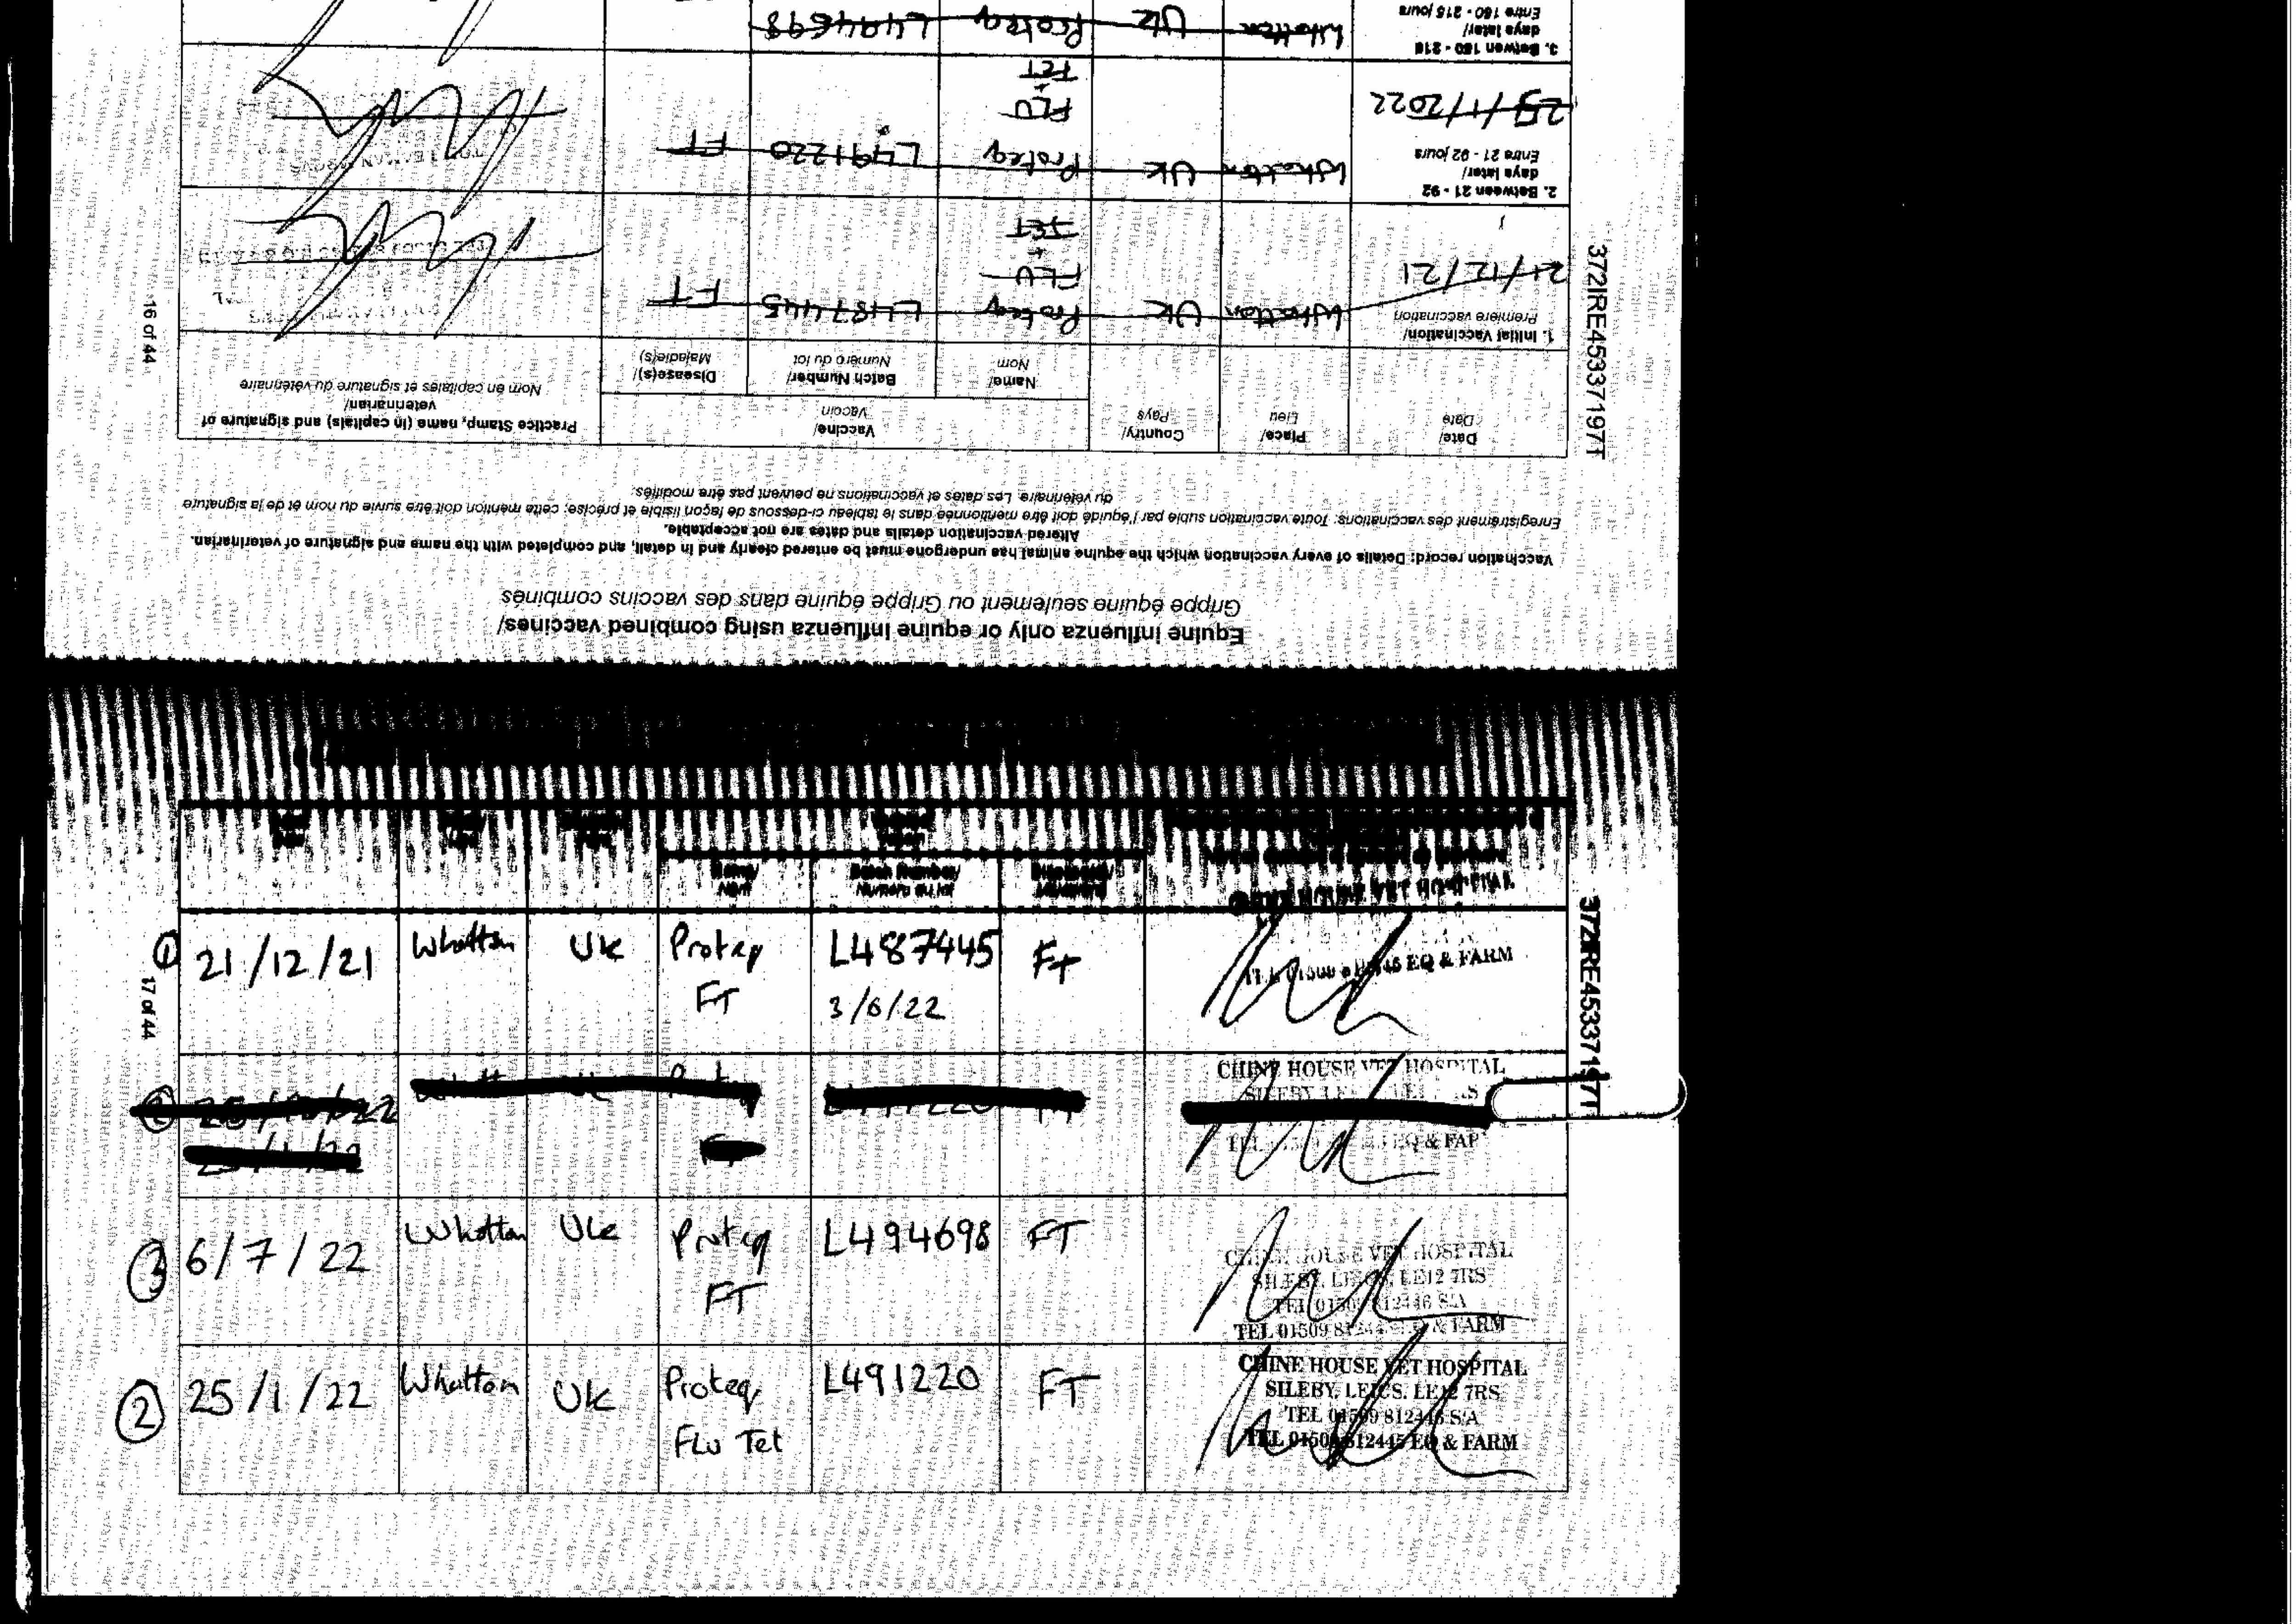 Equine influenza only or equine influenza using combined vaccines/
Grippe équine seulement ou Grippe équine dans des vaccins combinés
Vaccination record: Details of every vaccination which the equine animal has undergone must be entered clearly and in detail, and completed with the name and signature of veterinarian.
Altered vaccination details and dates are not acceptable.
Enregistrement des vaccinations: Toute vaccination subie par l'équidé doit être mentionnée dans le tableau ci-dessous de façon lisible et précise; cette mention doit être suivie du nom et de la signature
du vétérinaire. Les dates et vaccinations ne peuvent pas être modifiés.
Date/ Place/ Country/ Vaccine/ Practice Stamp, name (in capitals) and signature of
Date Lieu Pays Vaccin veterinarian/
Name/ Batch Number/ Disease(s)/ Nom en capitales et signature du vétérinaire
Nom Numéro du lot Maladie(s)
1. Initial Vaccination/
Première vaccination
21/12/21 Whatton UK Proteq L487445 FT
FLU
+
TET
2. Between 21 - 92
days later/
Entre 21 - 92 jours
Whatton UK Proteq L491220 FT
FLU
+
TET
3. Between 150 - 215
days later/
Entre 150 - 215 jours
Whatton UK Proteq L494698
16 of 44
372IRE45337197T
Name/ Batch Number/
Nom Numéro du lot
① 21/12/21 Whatton UK Proteq L487445 FT
FT 3/6/22
EQ & FARM
CHINE HOUSE VET HOSPITAL
③ 6/7/22 Whatton UK Proteq L494698 FT
FT
CHINE HOUSE VET HOSPITAL
SILEBY, LEICS. LE12 7RS
TEL 01509 812446 S/A
TEL 01509 812445 EQ & FARM
② 25/1/22 Whatton UK Proteq L491220 FT
FLU Tet
CHINE HOUSE VET HOSPITAL
SILEBY, LEICS. LE12 7RS
TEL 01509 812446 S/A
TEL 01509 812445 EQ & FARM
17 of 44
372IRE45337197T